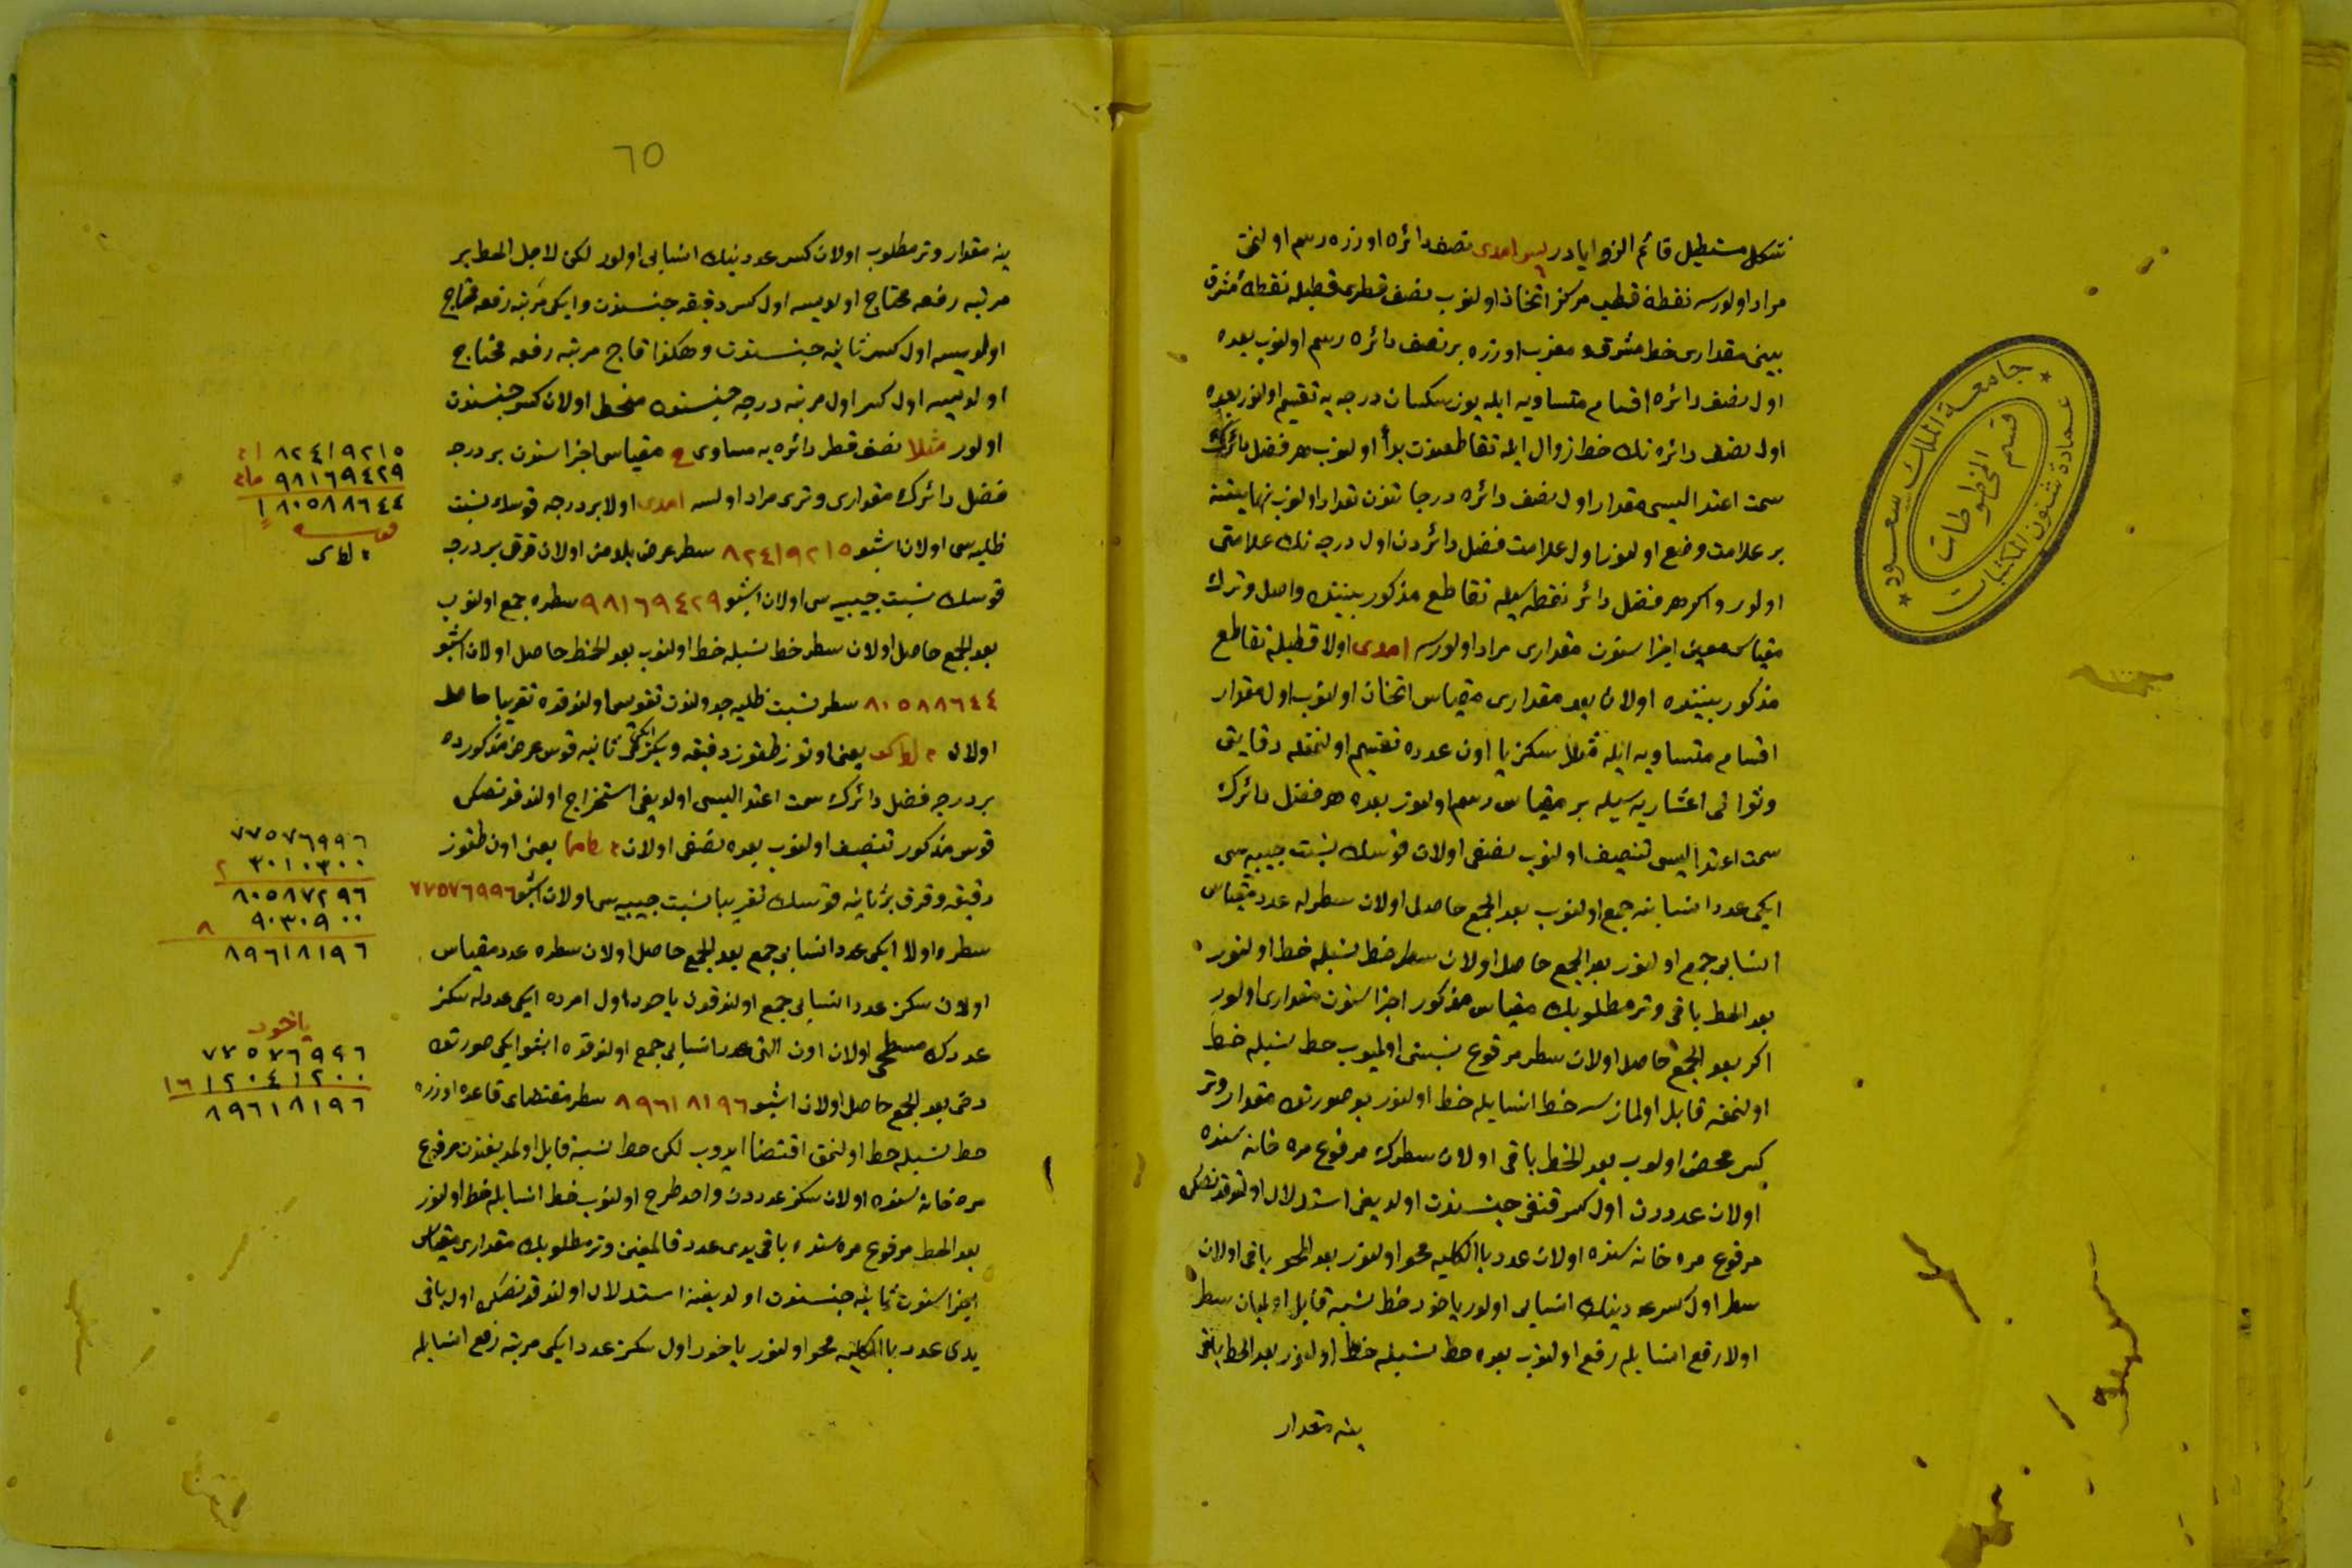 شكل مستطيل قائم الزوايادر پس امدى نصف دائره اوزره رسم اولنمق
مراد اولورسه نقطۀ قطب مركز اتخاذ اولنوب نصف قطرى قطبله نقطۀ مشرق
بينى مقدارى خط مشرق و مغرب اوزره بر نصف دائره رسم اولنوب بعده
اول نصف دائره اقسام متساويه ايله يوز سكسان درجه يه تقسيم اولنور بعده
اول نصف دائره نك خط زوال ايله تقاطعندن بدأ اولنوب هر فضل دائرك
سمت اعتداليسى مقدار اول نصف دائره درجاتندن تعداد اولنوب نهايتنه
بر علامت وضع اولنور اول علامت فضل دائردن اول درجه نك علامتى
اولور و اكر هر فضل دائر نقطه سيله تقاطع مذكور بيننك واصل وترك
مقياس معين اجزاسندن مقدارى مراد اولورسه امدى اولا قطبله تقاطع
مذكور بيننده اولان بعد مقدارى مقياس اتخاذ اولنوب اول مقدار
اقسام متساويه ايله مثلا سكز يا اون عدده تقسيم اولنمغله دقايق
و ثوانى اعشاريه سيله بر مقياس رسم اولنور بعده هر فضل دائرك
سمت اعتداليسى تنصيف اولنوب نصفى اولان قوسك نسبت جيبيه سى
ايكى عدد انسابنه جمع اولنوب بعد الجمع حاصل اولان سطرله عدد مقياس
انسابى جمع اولنور بعد الجمع حاصل اولان سطر خط نسبله خط اولنور
بعد الحط باقى وتر مطلوبك مقياس مذكور اجزاسندن مقدارى اولور
اكر بعد الجمع حاصل اولان سطر مرفوع نسبتى اولميوب حط نسبله خط
اولنمغه قابل اولمازسه خط انسابله خط اولنور بو صورتده مقدار وتر
كسر محض اولوب بعد الحط باقى اولان سطرك مرفوع مره خانه سنده
اولان عدددن اول كسر قنغى جنسندن اولديغى استدلال اولندقدنصكره
مرفوع مره خانه سنده اولان عدد بالكليه محو اولنور بعد المحو باقى اولان
سطر اول كسر عددينك انسابى اولور ياخود خط نسبه قابل اولميان سطر
اولا رفع انسابله رفع اولنوب بعده حط نسبله خط اولنور بعد الحط باقى
ينه مقدار
جامعة الملك سعود
قسم المخطوطات
عمادة شئون المكتبات
٦٥
ينه مقدار وتر مطلوب اولان كسر عددينك انسابى اولور لكن لاجل الحط بر
مرتبه رفعه محتاج اولديسه اول كسر دقيقه جنسندن و ايكى مرتبه رفعه محتاج
اولديسه اول كسر ثانيه جنسندن و هكذا قاج مرتبه رفعه محتاج
اولديسه اول كسر اول مرتبه درجه جنسندن منحط اولان كسر جنسندن
اولور مثلا نصف قطر دائره يه مساوى ح مقياس اجزاسندن بر درجه
فضل دائرك مقدارى وترى مراد اولسه امدى اولا بر درجه قوسك نسبت
ظليه سى اولان اشبو ٨٢٤١٩٢١٥ سطر عرض بلددن اولان قرق بر درجه
قوسك نسبت جيبيه سى اولان اشبو ٩٨١٦٩٤٢٩ سطره جمع اولنوب
بعد الجمع حاصل اولان سطر خط نسبله خط اولنوب بعد الحط حاصل اولان اشبو
٨٠٥٨٨٦٤٤ سطر نسبت ظليه جدولندن تقويس اولندقده تقريبا حاصل
اولان يعنى اوتوز طقوز دقيقه و يكرمى ايكى ثانيه قوس عرض مذكورده
بر درجه فضل دائرك سمت اعتداليسى اولديغى استخراج اولندقدنصكره
قوس مذكور تنصيف اولنوب بعده نصفى اولان يعنى اون طقوز
دقيقه و قرق بر ثانيه قوسك تقريبا نسبت جيبيه سى اولان اشبو ٧٧٥٧٦٩٩٦
سطره اولا ايكى عدد انسابى جمع بعد الجمع حاصل اولان سطره عدد مقياس
اولان سكز عدد انسابى جمع اولندقدن ياخود اول امرده ايكى عددله سكز
عددك مسطحى اولان اون التى عدد انسابى جمع اولندقده اشبو ايكى صورتده
دخى بعد الجمع حاصل اولان اشبو ٨٩٦١٨١٩٦ سطر مقتضاى قاعده اوزره
حط نسبله حط اولنمق اقتضا ايدوب لكن حط نسبه قابل اولمديغندن مرفوع
مره خانه سنده اولان سكز عدددن واحد طرح اولنوب خط انسابله خط اولنور
بعد الحط مرفوع مره سنده باقى يدى عدد قالمغين وتر مطلوبك مقدارى مقياس
اجزاسندن ثانيه جنسندن اولديغنه استدلال اولندقدنصكره اول باقى
يدى عدد بالكليه محو اولنور ياخود اول سكز عدد ايكى مرتبه رفع انسابله
٨٢٤١٩٢١٥
٩٨١٦٩٤٢٩
١٨٠٥٨٨٦٤٤
قوسه
٧٧٥٧٦٩٩٦
٣٠١٠٣٠٠ ٢
٨٠٥٨٧٢٩٦
٩٠٣٠٩٠٠ ٨
٨٩٦١٨١٩٦
ياخود
٧٧٥٧٦٩٩٦
١٢٠٤١٢٠٠ ١٦
٨٩٦١٨١٩٦